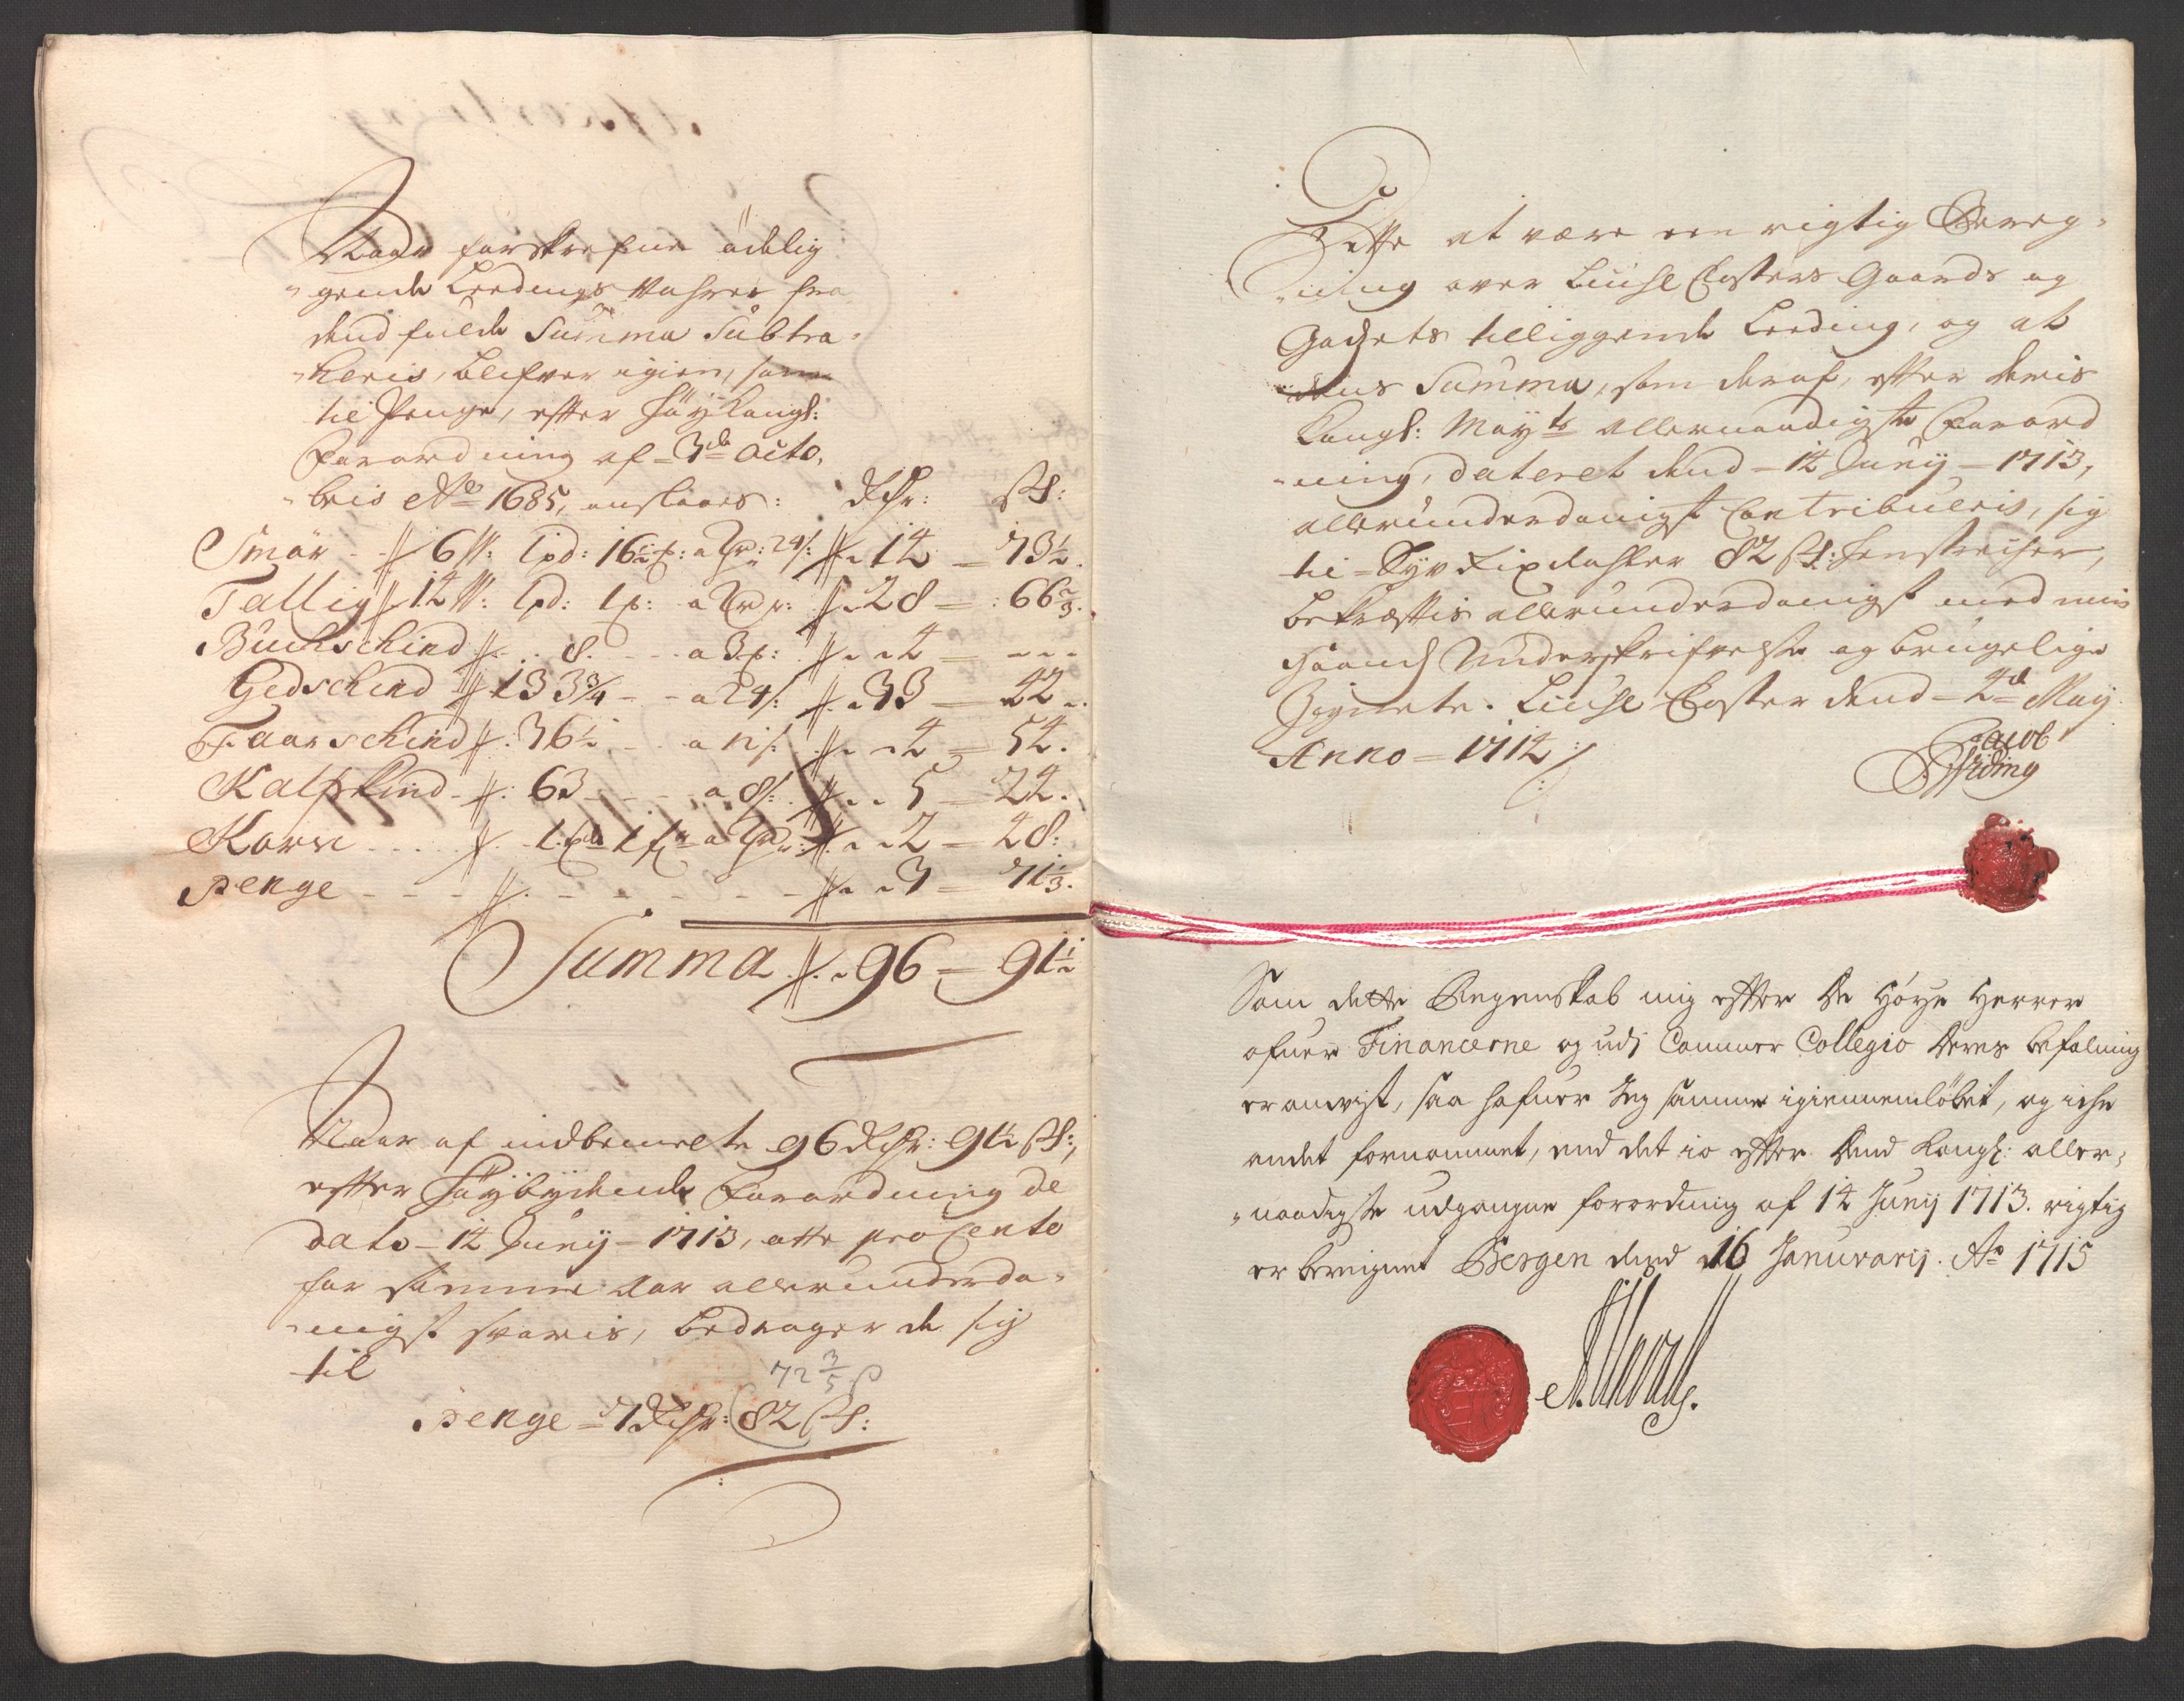 Naar forskrefne ödelig
gende Leedings Vahrer fra
dend fulde Summa Subtra-
heris, blifver igien, som
til Penge, efter Höy Kongl:
Forordning af 3de Octo,
bris Ao 1685, anslaaes: Rdr: ß:
Smör 6 W: 1pd: 16½ : a 24ß: 14 — 73½.
Tallig 12 W: 1pd: 1 : a 28 — 66⅔.
Buckschind 8. a 3 : 4 — ---
Gedschind 133¾ - - a 24ß: 33 — 42
Faarschind 36½ - - a 12ß: 4 — 54.
Kalfskind 63 - - a 8ß: 5 — 24.
Korn 1 1 a 2 — 48:
Penge - - - 3 — 71⅓.
Summa 96 — 91½
Naar af indbemelte 96 Rdr: 91½ ß:,
efter Höybydende Forordning de
dato 14 Junij 1713, otte pro Cento
for samme Aar allerunderda-
nigst svaris, bedrager de sig
til
72 3/5 ß
Penge = 7 Rdr: 82 ß:
Dette at være een rigtig Bereg-
ning over Liusse Closters Gaards og
Godsets tilliggende Leeding, og at
dens Summa, som deraf, efter deris
Kongl: Mayts allernaadigste Forord
ning, dateret dend 14 Junij 1713,
allerunderdanigst Contribueris, sig
til Syv Rixdahler 82 ß: henstrecher,
bekræftis allerunderdanigst med min
Haands Underskrifvelse og brugelige
Zignete. Liusse Closter dend 2d May
Anno 1714
Jacob
Widing
Som dette Regenskab mig efter De Höye Herrer
ofuer Financerne og udj Cammer Collegio Deres befalning
er anvist, saa hafuer Jeg samme igiennemlöbet, og icke
andet fornommet, end det io efter Dend Kongl: aller-
naadigste udgangne forordning af 14 Junij 1713. rigtig
er beregnet Bergen dend 16 Januarij. Ao 1715